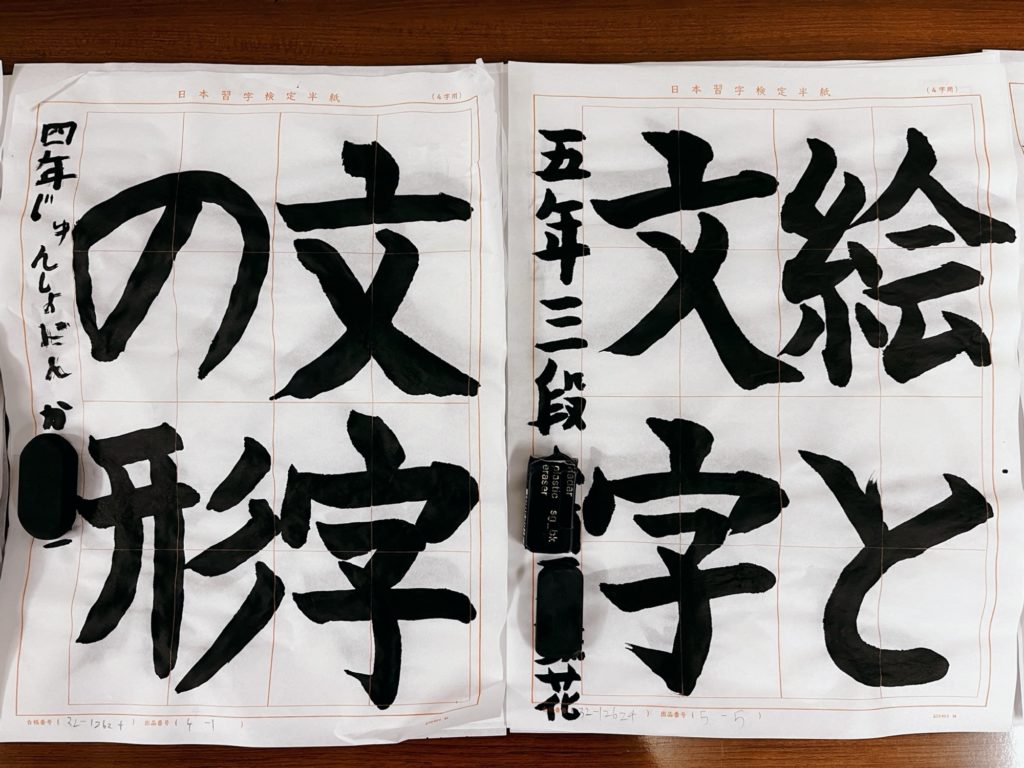 日本習字検定半紙
(4字用)
文字
の形
四年じゅんしょだん か
合格番号 (32-12624) 出品番号 (4-1)
日本習字検定半紙
(4字用)
絵と
文字
五年三段
花
radar
elastic
eraser
32-12624) 出品番号 (5-5)